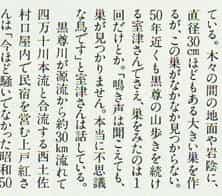 ている。木々の間の地面や岩棚に、
直径30㎝ほどもある大きい巣を作
るが、この巣がなかなか見つからない。
50年近くも黒尊の山歩きを続け
る室津さんでさえ、巣を見たのは1
回だけだとか。「鳴き声は聞こえても、
巣が見つかりません。本当に不思議
な鳥です」と室津さんは話している。
黒尊川が源流から約30㎞流れて
四万十川本流と合流する西土佐
村口屋内で民宿を営む上戸紅さ
んは、今ほど騒いでなかった昭和50